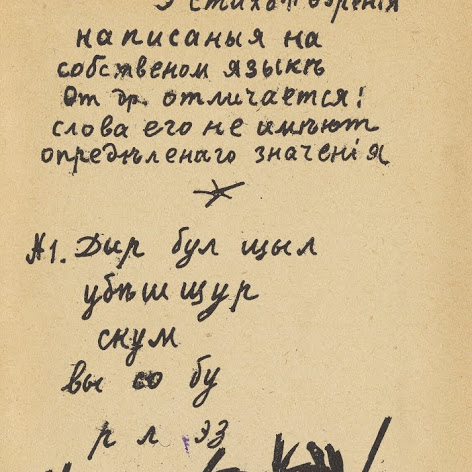 3 стихотворенія
написаныя на
собственом языкѣ
От др. отличается:
слова его не имѣют
опредѣленаго значенія
№1. Дыр бул щыл
убѣшщур
скум
вы со бу
р л эз